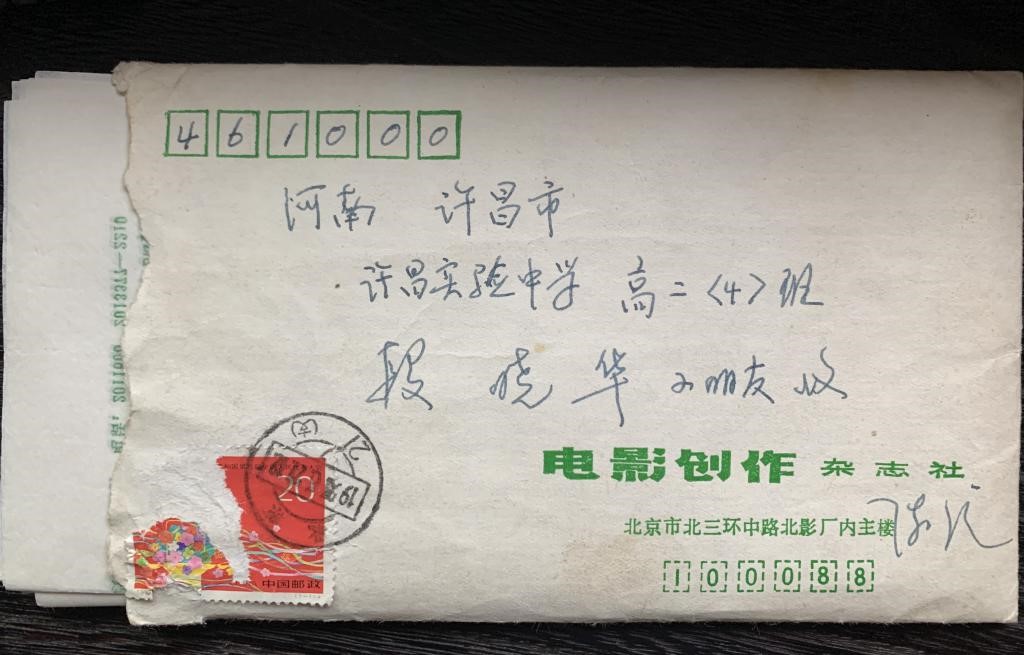 461000
河南 许昌市
许昌实验中学 高二〈4〉班
段 晓 华 小朋友 收
电影创作 杂志社
北京市北三环中路北影厂内主楼
100088
20
中国邮政
电话：2011066 2013377—2210